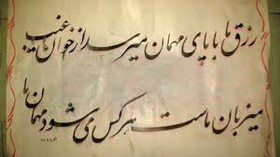 رزق ما با پای مهمان میرسد از خوان غیب
میزبان ماست هر کس می شود مهمان ما